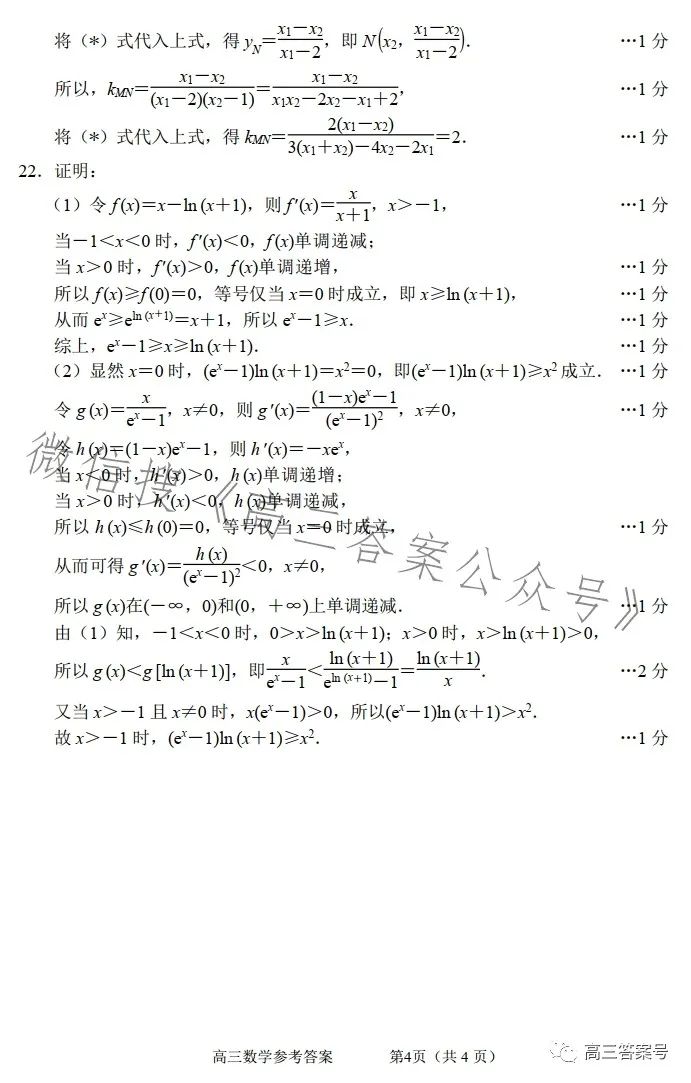 将（*）式代入上式，得 y_N＝(x₁－x₂)/(x₁－2)，即 N(x₂，(x₁－x₂)/(x₁－2))． …1 分
所以，k_MN＝(x₁－x₂)/((x₁－2)(x₂－1))＝(x₁－x₂)/(x₁x₂－2x₂－x₁＋2)， …1 分
将（*）式代入上式，得 k_MN＝2(x₁－x₂)/(3(x₁＋x₂)－4x₂－2x₁)＝2． …1 分
22．证明：
（1）令 f(x)＝x－ln (x＋1)，则 f′(x)＝x/(x＋1)，x＞－1， …1 分
当－1＜x＜0 时，f′(x)＜0，f(x)单调递减；
当 x＞0 时，f′(x)＞0，f(x)单调递增， …1 分
所以 f(x)≥f(0)＝0，等号仅当 x＝0 时成立，即 x≥ln (x＋1)， …1 分
从而 eˣ≥e^(ln (x＋1))＝x＋1，所以 eˣ－1≥x． …1 分
综上，eˣ－1≥x≥ln (x＋1)． …1 分
（2）显然 x＝0 时，(eˣ－1)ln (x＋1)＝x²＝0，即(eˣ－1)ln (x＋1)≥x² 成立． …1 分
令 g (x)＝x/(eˣ－1)，x≠0，则 g′(x)＝((1－x)eˣ－1)/(eˣ－1)²，x≠0， …1 分
令 h (x)＝(1－x)eˣ－1，则 h′(x)＝－xeˣ，
当 x＜0 时，h′(x)＞0，h (x)单调递增；
当 x＞0 时，h′(x)＜0，h (x)单调递减，
所以 h (x)≤h (0)＝0，等号仅当 x＝0 时成立， …1 分
从而可得 g′(x)＝h (x)/(eˣ－1)²＜0，x≠0，
所以 g (x)在(－∞，0)和(0，＋∞)上单调递减． …1 分
由（1）知，－1＜x＜0 时，0＞x＞ln (x＋1)；x＞0 时，x＞ln (x＋1)＞0，
所以 g (x)＜g [ln (x＋1)]，即 x/(eˣ－1)＜ln (x＋1)/(e^(ln (x＋1))－1)＝ln (x＋1)/x． …2 分
又当 x＞－1 且 x≠0 时，x(eˣ－1)＞0，所以(eˣ－1)ln (x＋1)＞x²．
故 x＞－1 时，(eˣ－1)ln (x＋1)≥x²． …1 分
微信搜《高三答案公众号》
高三数学参考答案 第4页（共 4 页）
高三答案号